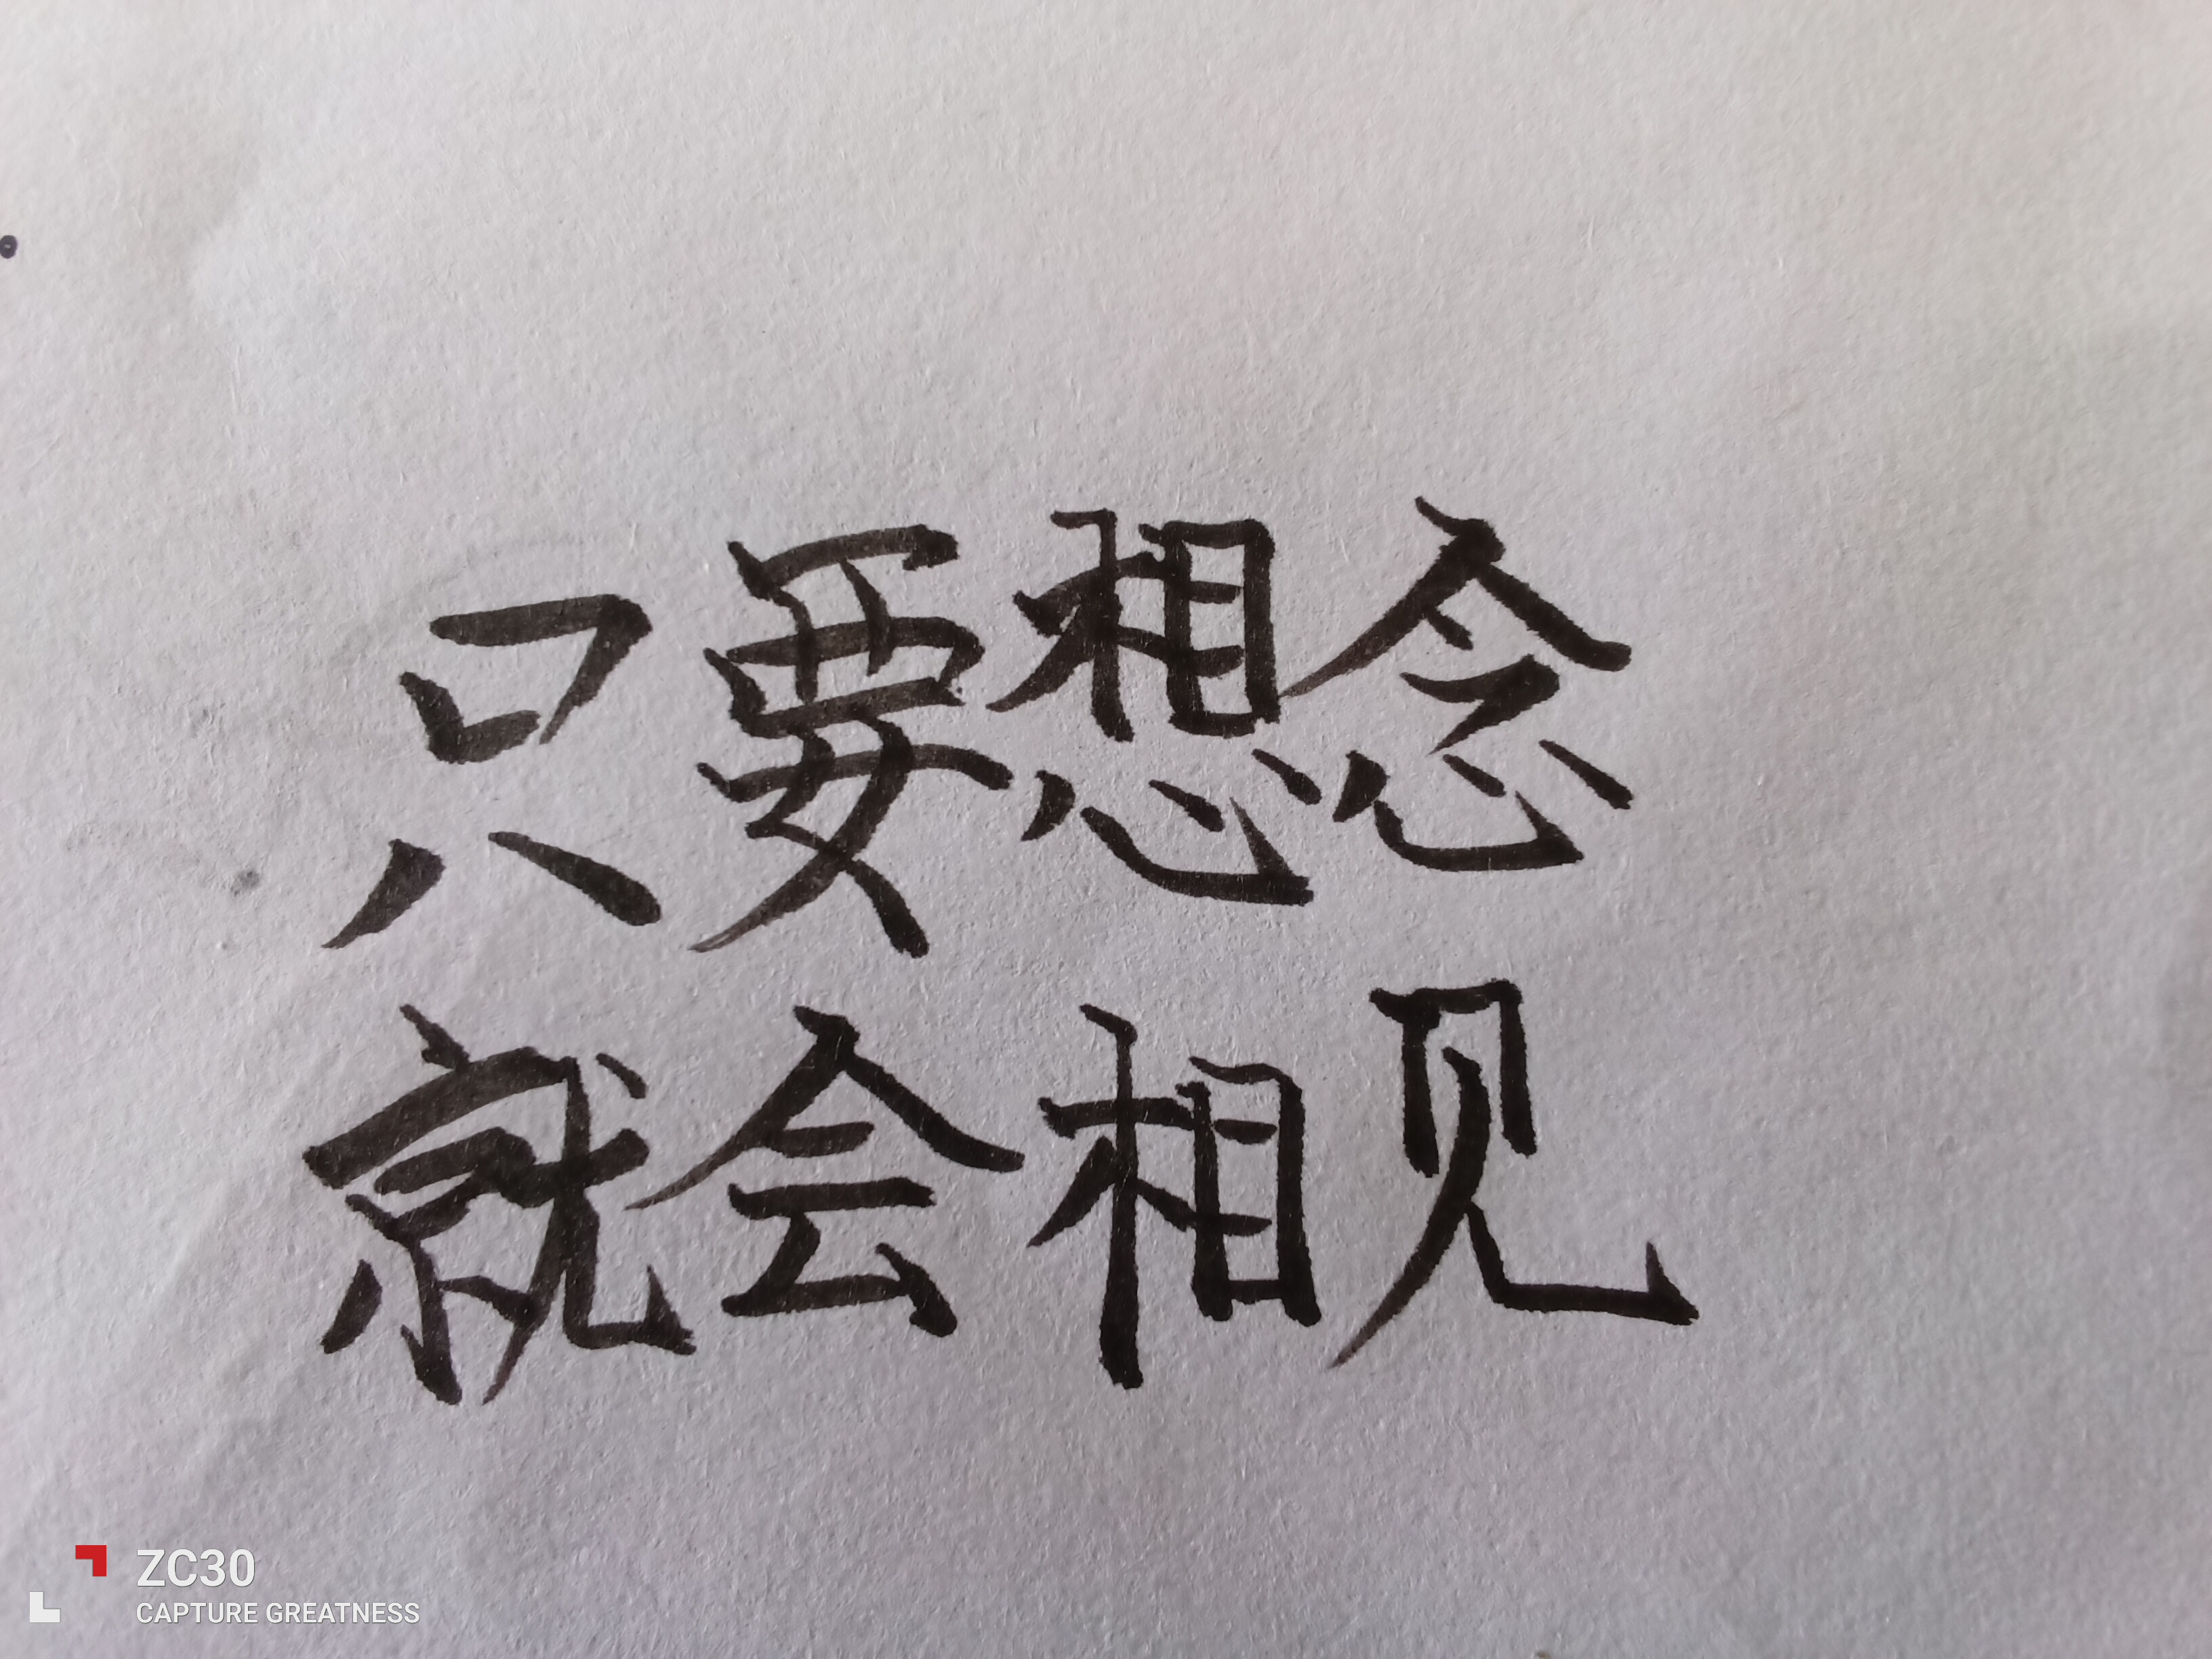 只要想念
就会相见
ZC30
CAPTURE GREATNESS